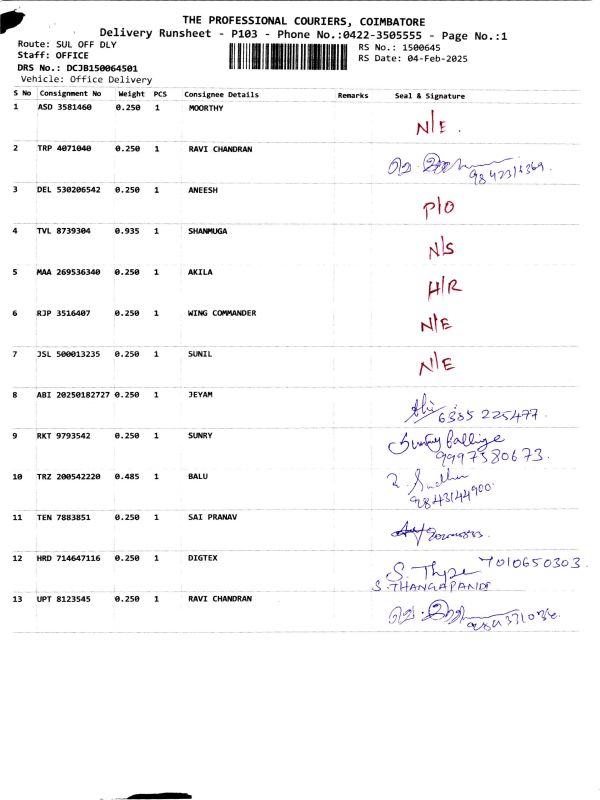 THE PROFESSIONAL COURIERS, COIMBATORE
Delivery Runsheet - P103 - Phone No.:0422-3505555 - Page No.:1
Route: SUL OFF DLY RS No.: 1500645
Staff: OFFICE RS Date: 04-Feb-2025
DRS No.: DCJB150064501
Vehicle: Office Delivery
S No Consignment No Weight PCS Consignee Details Remarks Seal & Signature
1 ASD 3581460 0.250 1 MOORTHY N/E.
2 TRP 4071040 0.250 1 RAVI CHANDRAN
3 DEL 530206542 0.250 1 ANEESH P/O
4 TVL 8739304 0.935 1 SHANMUGA N/S
5 MAA 269536340 0.250 1 AKILA H/R
6 RJP 3516407 0.250 1 WING COMMANDER N/E
7 JSL 500013235 0.250 1 SUNIL N/E
8 ABI 20250182727 0.250 1 JEYAM 6385 225477.
9 RKT 9793542 0.250 1 SUNRY
9997580673.
10 TRZ 200542220 0.485 1 BALU
9843144900
11 TEN 7883851 0.250 1 SAI PRANAV
12 HRD 714647116 0.250 1 DIGTEX 7010650303.
S. THANGAPANDI
13 UPT 8123545 0.250 1 RAVI CHANDRAN